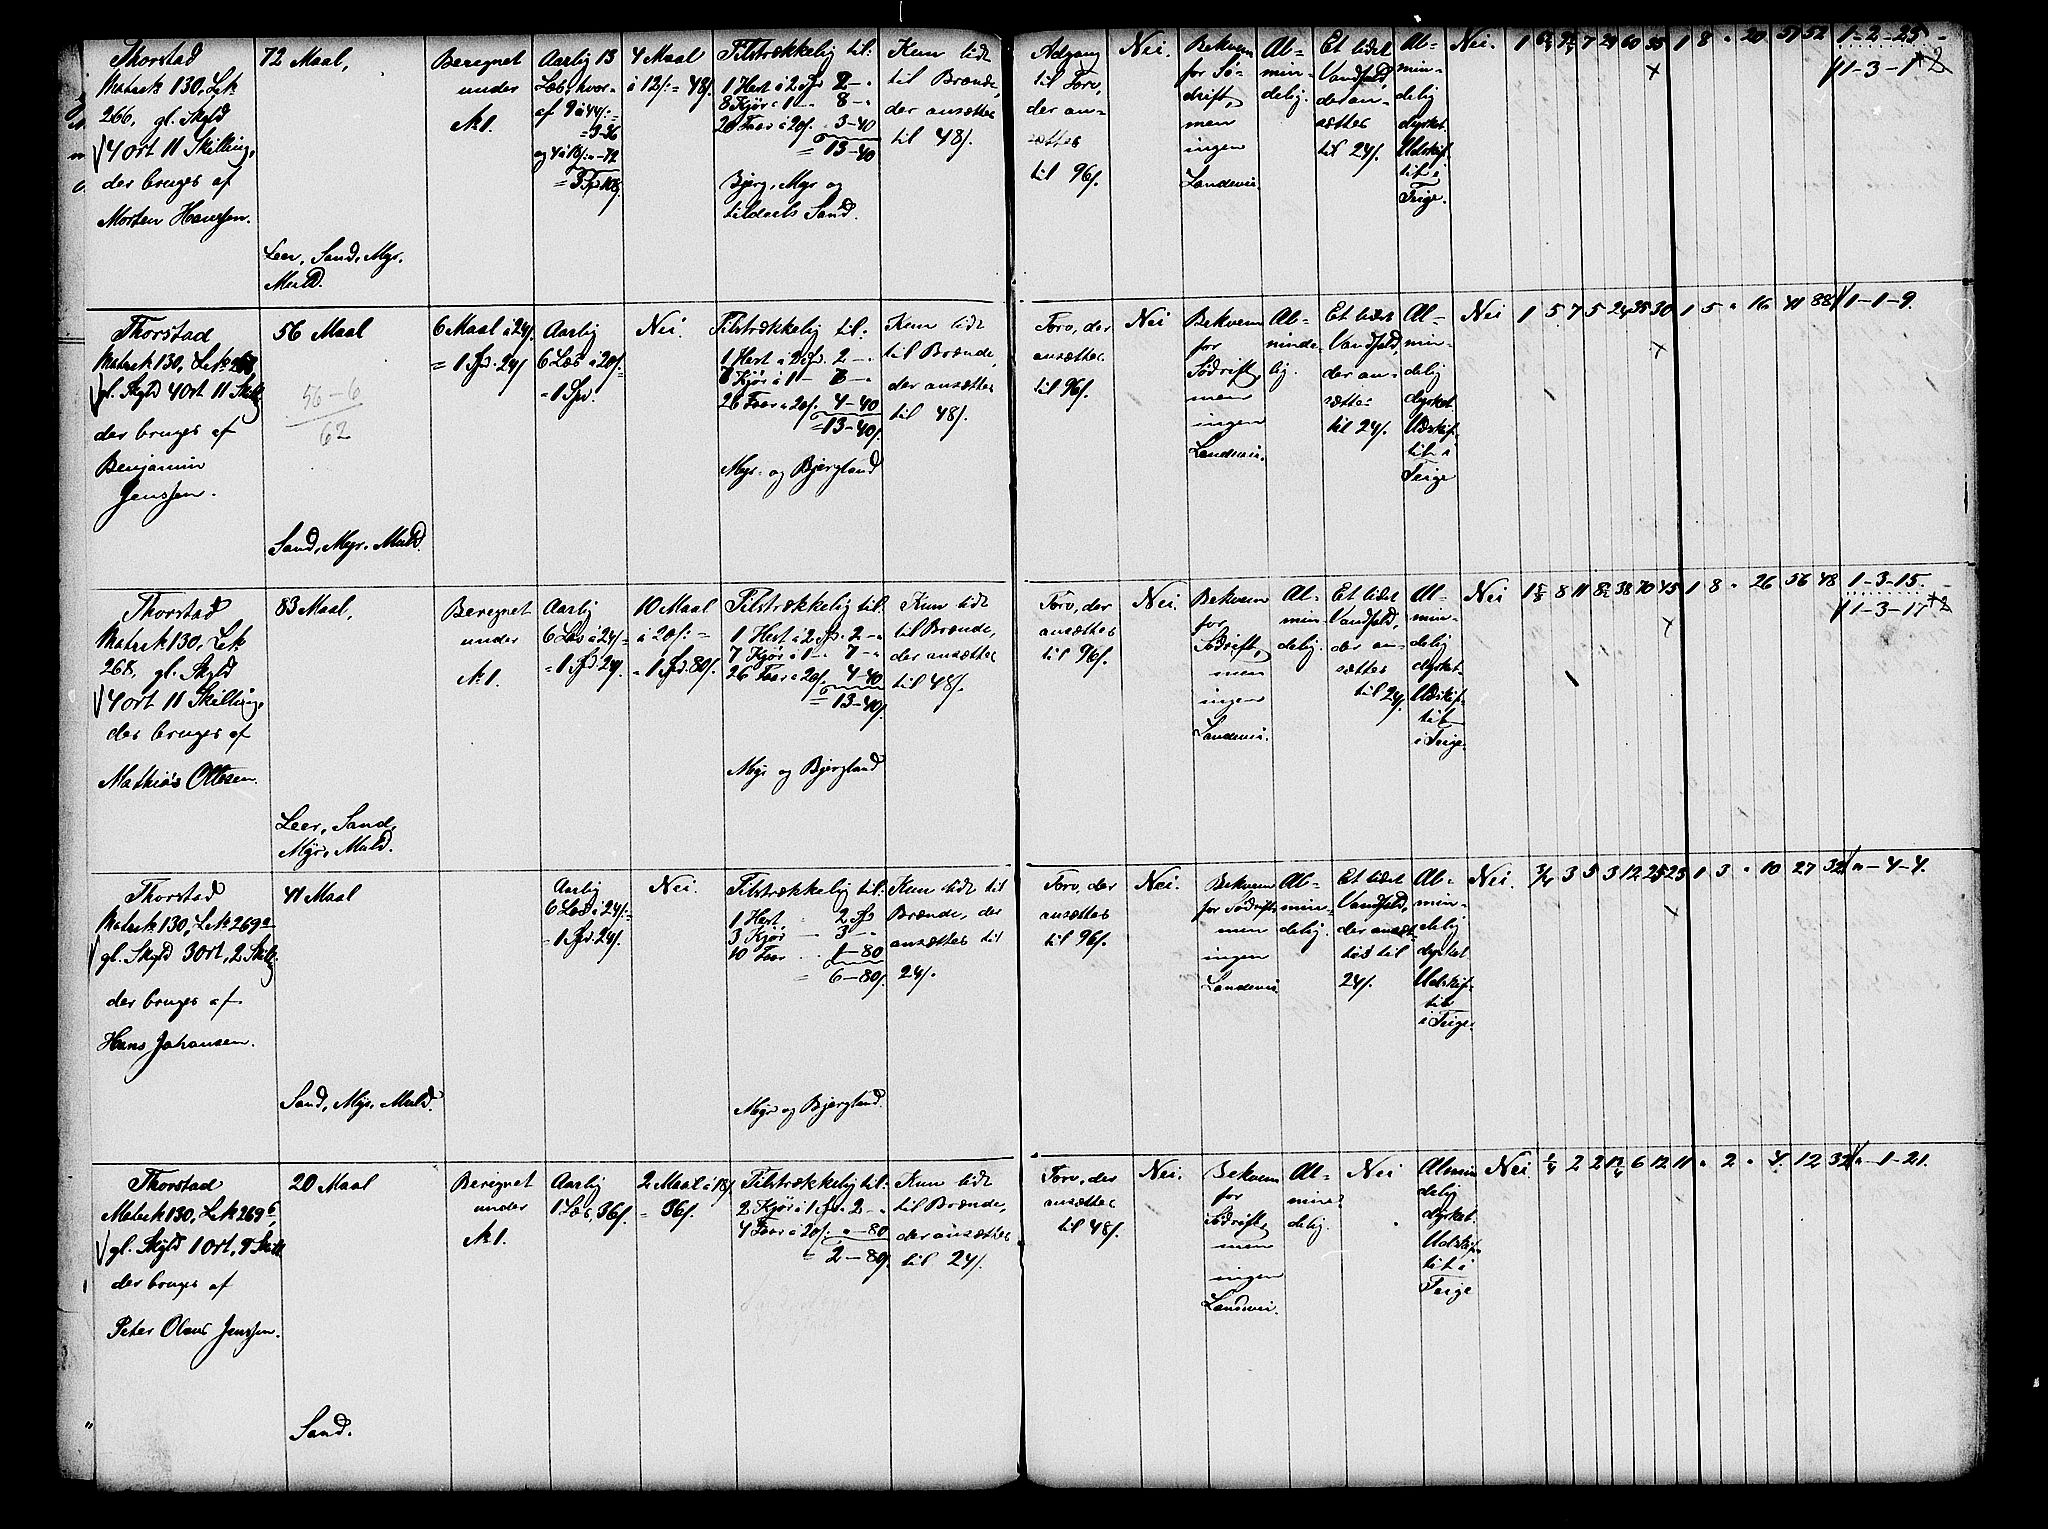 Thorstad
Matrsk 130, Lek
266, gl. Skyld
4 ort 11 Skilling,
der bruges af
Morten Hanssen.
72 Maal,
Leer, Sand, Myr,
Muld.
Beregnet
under
№ 1.
Aarlig 13
Læs, hvor-
af 9 à 44 ſ. =
= 3-36
og 4 à 18 ſ. = -72
= 3 Spd 108 ſ.
4 Maal
à 12 ſ. = 48 ſ.
Tilstrækkelig til:
1 Hest à 2 Spd 2-"
8 Kjør à 1 -" 8-"
20 Faar à 20 ſ. 3-40
= 13-40
Bjerg, Myr og
tildeels Sand.
Kun lidt
til Brænde,
der ansættes
til 48 ſ.
Adgang
til Torv,
der an-
sættes
til 96 ſ.
Nei.
Bekvem
for Sö-
drift,
men
ingen
Landevei.
Al-
min-
delig.
Et lidet
Vandfald,
der an-
sættes
til 24 ſ.
Al-
min-
delig
dyrket.
Udskif-
tet i
Teige.
Nei.
1 7 29 60 35 1 8 " 20 57 52
1-2-25
1-3-1
Thorstad
Matrsk 130, Lek 267
gl. Skyld 4 Ort 11 Skill
der bruges af
Benjamin
Jenssen.
56 Maal
56-6
62
Sand, Myr, Muld.
6 Maal à 24 ſ.
= 1 Spd. 24 ſ
Aarlig
6 Læs à 20 ſ. =
= 1 Spd.
Nei
Tilstrækkelig til:
1 Hest à 2 Spd. 2-"
7 Kjør à 1 - 7-"
26 Faar à 20 ſ. 4-40
= 13-40 ſ.
Myr- og Bjergland
Kun lidt
til Brænde,
der ansættes
til 48 ſ.
Torv, der
ansættes
til 96 ſ.
Nei
Bekvem
for
Södrift,
men
ingen
Landevei.
Al-
minde-
lig.
Et lidet
Vandfald,
der an-
sættes
til 24 ſ.
Al-
min-
delig
dyrket
Udskif-
tet i
Teige
Nei
1 5 7 5 24 35 30 1 5 " 16 41 88
1-1-9.
Thorstad
Matrsk 130, Lek
268, gl. Skyld
4 ort 11 Skilling,
der bruges af
Mathias Ottesen.
83 Maal,
Leer, Sand,
Myr, Muld.
Beregnet
under
№ 1.
Aarlig
6 Læs à 24 ſ. =
= 1 Spd. 24 ſ.
10 Maal
à 20 ſ. =
= 1 Spd. 80 ſ.
Tilstrækkelig til:
1 Hest à 2 Spd. 2-"
7 Kjør à 1 -" 7-"
26 Faar à 20 ſ. 4-40
= 13-40 ſ.
Myr og Bjergland
Kun lidt
til Brænde,
der ansættes
til 48 ſ.
Torv, der
ansættes
til 96 ſ.
Nei.
Bekvem
for
Södrift,
men
ingen
Landevei.
Al-
min-
delig.
Et lidet
Vandfald,
der an-
sættes
til 24 ſ.
Al-
min-
delig
dyrket.
Udskif-
tet
i Teige.
Nei
8 11 38 70 45 1 8 " 26 56 48
1-3-15.
1-3-17
Thorstad
Matrsk 130, Lek 269 a
gl. Skyld 3 Ort, 2 Skill.
der bruges af
Hans Johansen.
41 Maal
Sand, Myr, Muld.
Aarlig
6 Læs à 24 ſ. =
= 1 Spd. 24 ſ.
Nei.
Tilstrækkelig til:
1 Hest 2 Spd
3 Kjør - 3-"
10 Faar . . 1-80
= 6-80 ſ.
Myr og Bjergland.
Kun lidt til
Brænde, der
ansættes til
24 ſ.
Torv, der
ansættes
til 96 ſ.
Nei.
Bekvem
for Södrift,
men
ingen
Landevei.
Al-
min-
delig.
Et lidet
Vandfald,
der ansæt-
tes til
24 ſ.
Al-
min-
delig
dyrket
Udskif-
tet
i Teige.
Nei.
3/4 3 5 3 12 25 23 1 3 " 10 27 32
" - 4-4.
Thorstad
Matrsk 130, Lek 269 b,
gl. Skyld 1 Ort, 9 Skill
der bruges af
Peter Olaus Jenssen.
20 Maal
Sand.
Beregnet
under
№ 1.
Aarlig
1 Læs, 36 ſ.
2 Maal à 18 ſ.
= 36 ſ.
Tilstrækkelig til:
2 Kjør à 1 Spd. 2-"
4 Faar à 20 ſ. "-80
= 2-80.
Kun lidt
til Brænde,
der ansættes
til 24 ſ.
Torv, der
ansættes
til 48 ſ.
Nei.
Bekvem
for
Södrift,
men
ingen
Landevei.
Al-
min-
delig.
Nei
Almin
delig
dyrket.
Udskif-
tet i
Teige
Nei
1/4 2 2 6 12 11 " 2 " 4 12 32
" - 1-21.